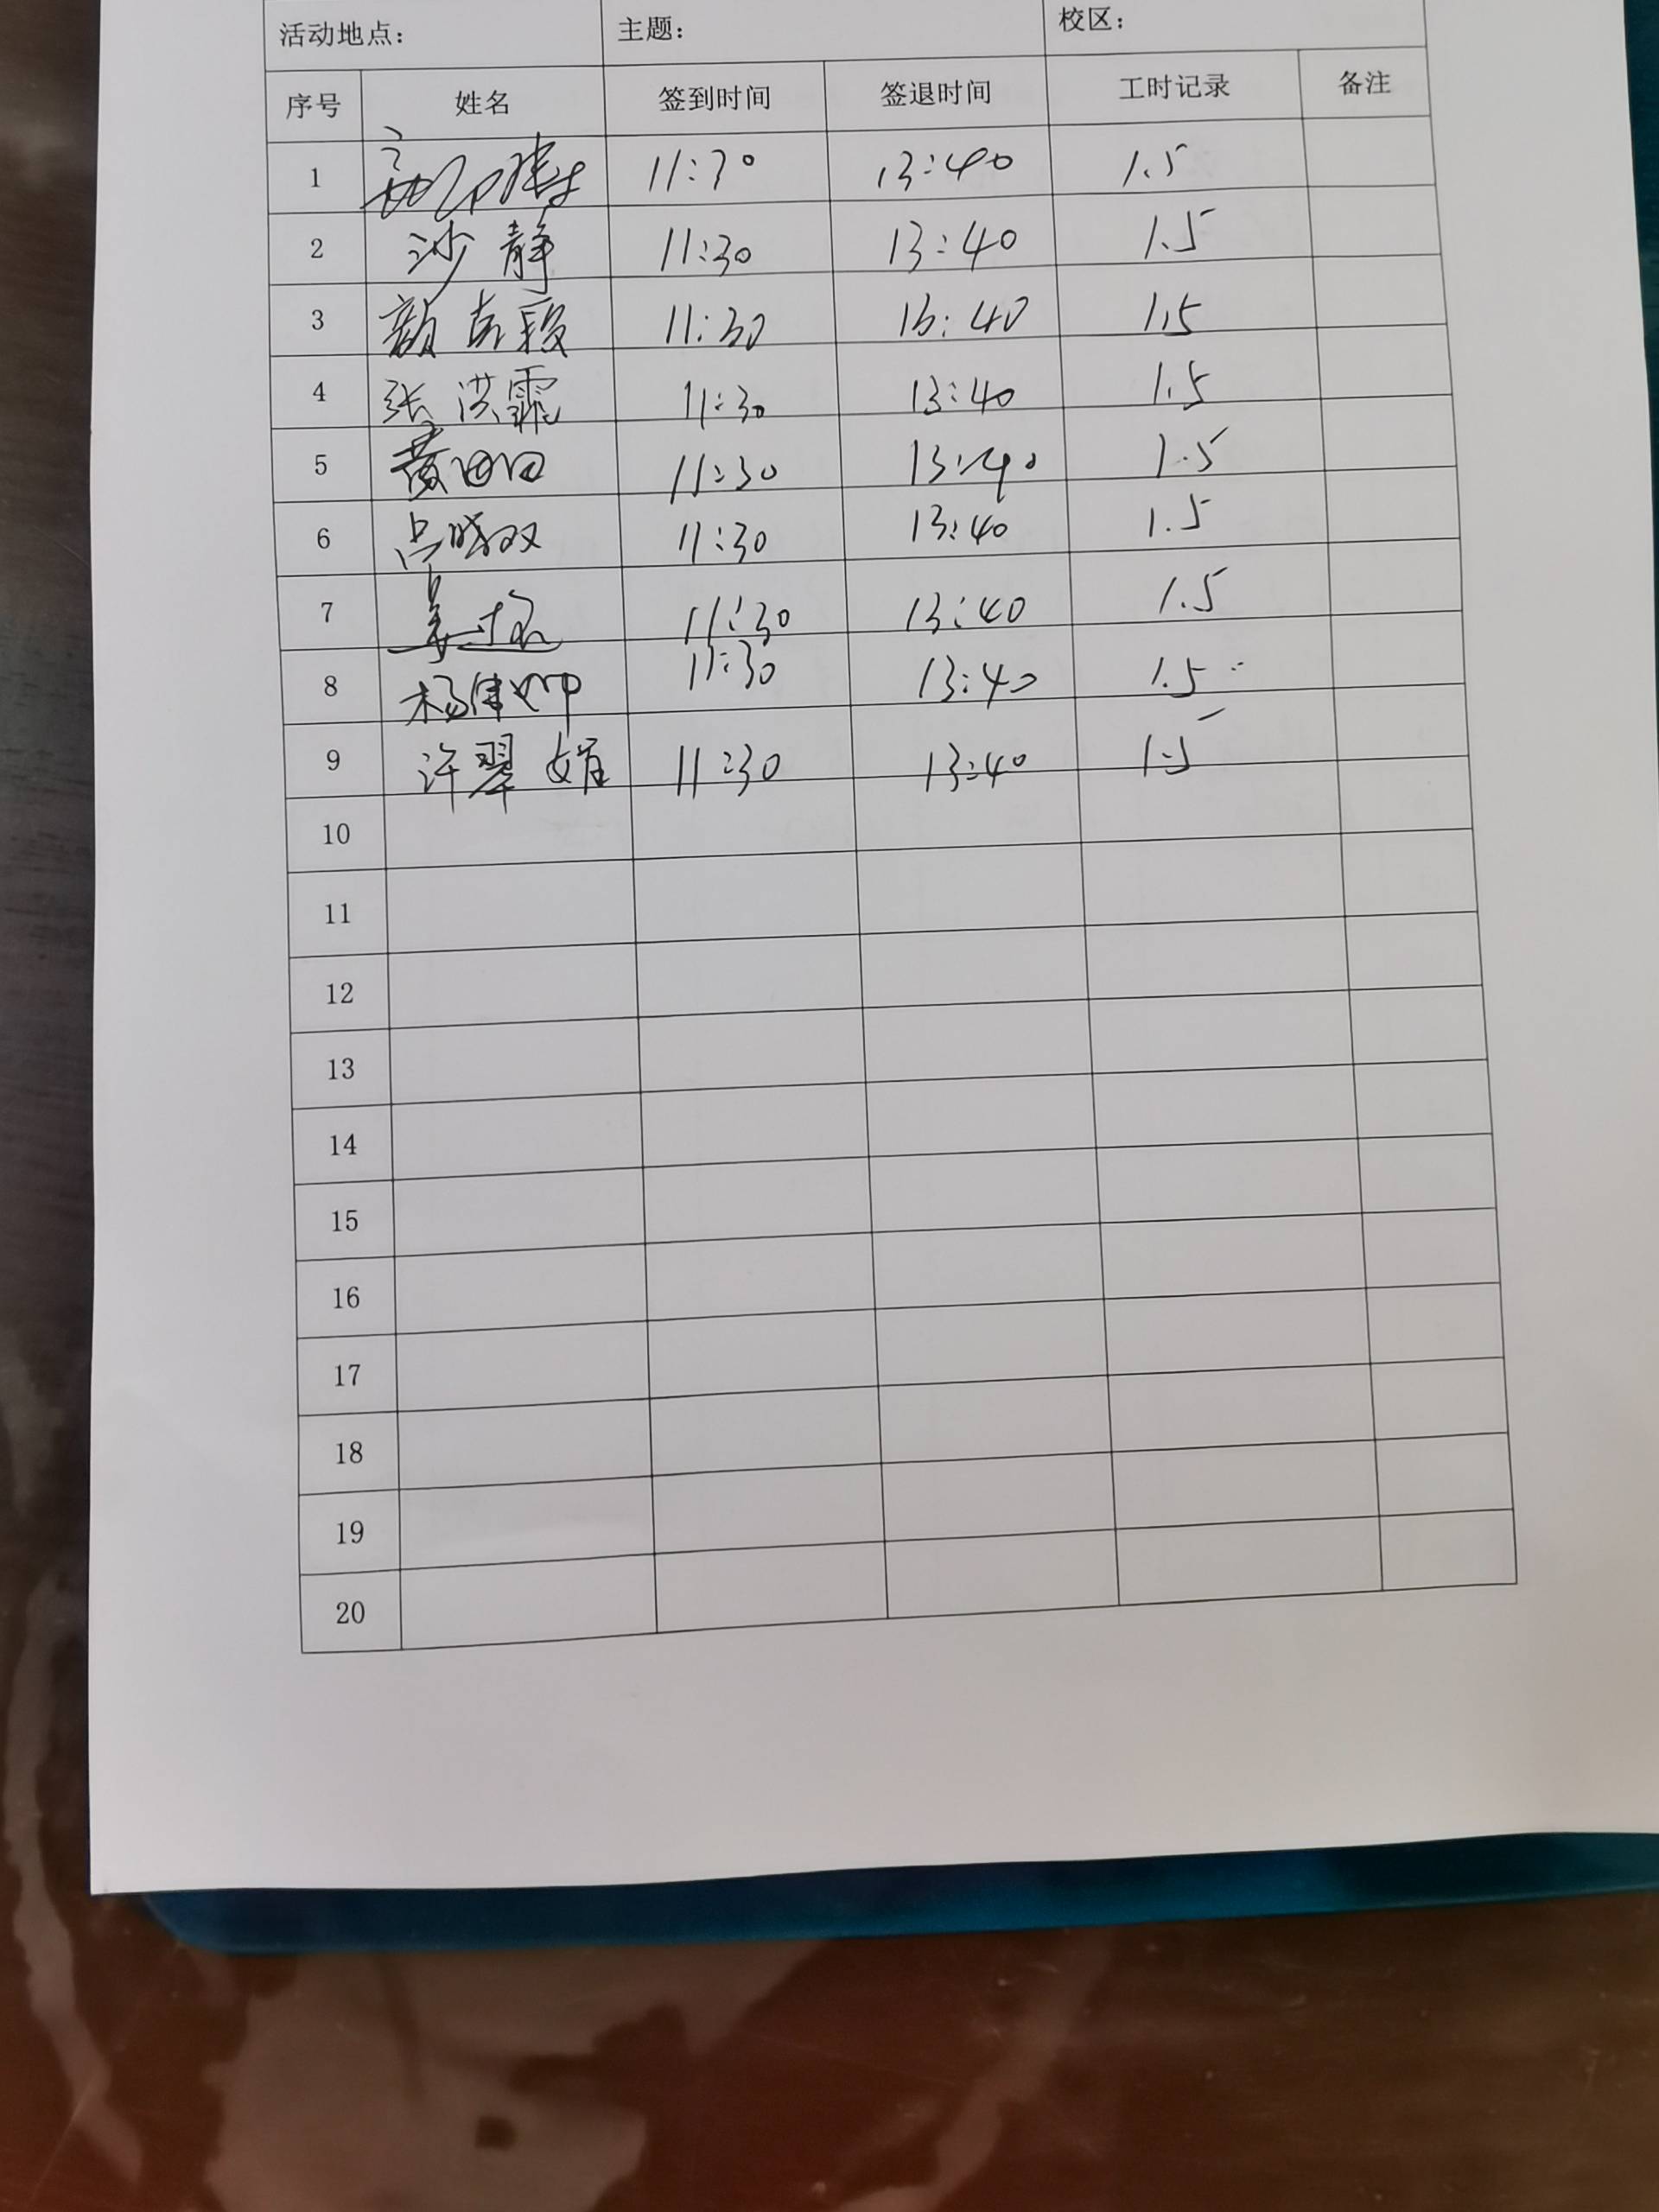 活动地点： 主题： 校区：
序号 姓名 签到时间 签退时间 工时记录 备注
1 11:30 13:40 1.5
2 沙静 11:30 13:40 1.5
3 颜 11:30 13:40 1.5
4 张洪霏 11:30 13:40 1.5
5 黄田田 11:30 13:40 1.5
6 双 11:30 13:40 1.5
7 11:30 13:40 1.5
8 杨伟 11:30 13:40 1.5
9 许翠娟 11:30 13:40 1.5
10
11
12
13
14
15
16
17
18
19
20